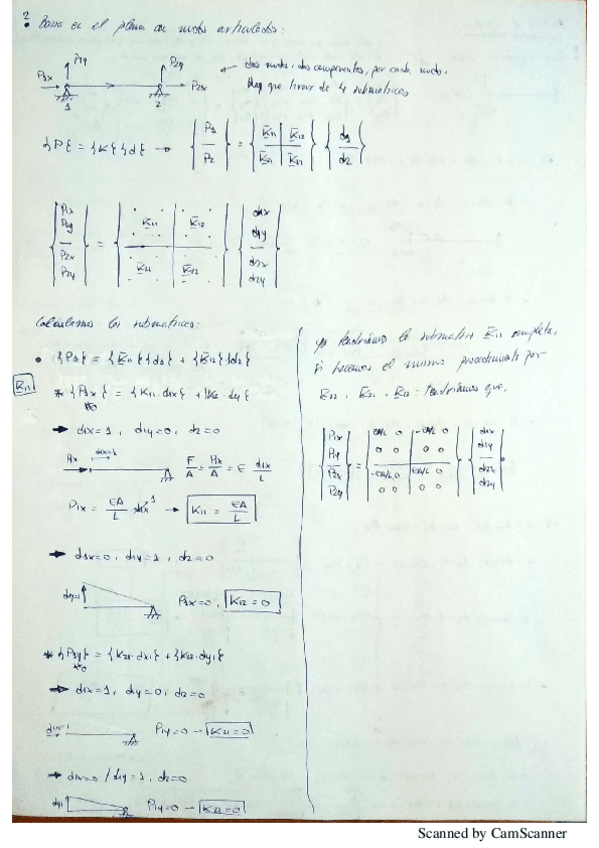 2
• Barra en el plano con nudos articulados:
P1y P2y
P1x → P2x
1 2
← dos nudos, dos componentes, por cada nudo.
Hay que tirar de 4 submatrices
{P} = {K}{d} → {P1 / P2} = {K11 K12 / K21 K22} {d1 / d2}
P1x d1x
P1y K11 K12 d1y
P2x = d2x
P2y K21 K22 d2y
Calculamos las submatrices:
• {P1} = {K11}{d1} + {K12}{d2}
K11
* {P1x} = {K11·d1x} + {K12·d1y}
→ d1x=1, d1y=0, d2=0
d1x=1
F/A = Px/A = E d1x/L
P1x = EA/L · d1x → K11 = EA/L
→ d1x=0, d1y=1, d2=0
d1y=1
P1x=0, K12=0
* {P1y} = {K21·dx1} + {K22·dy1}
→ d1x=1, d1y=0, d2=0
d1x=1
P1y=0 – K21=0
→ d1x=0 / d1y=1, d2=0
dy1
P1y=0 – K22=0
ya tendríamos la submatriz K11 completa,
si hacemos el mismo procedimiento por
K12, K21, K22: tendríamos que,
P1x EA/L 0 -EA/L 0 d1x
P1y = 0 0 0 0 d1y
P2x -EA/L 0 EA/L 0 d2x
P2y 0 0 0 0 d2y
Scanned by CamScanner